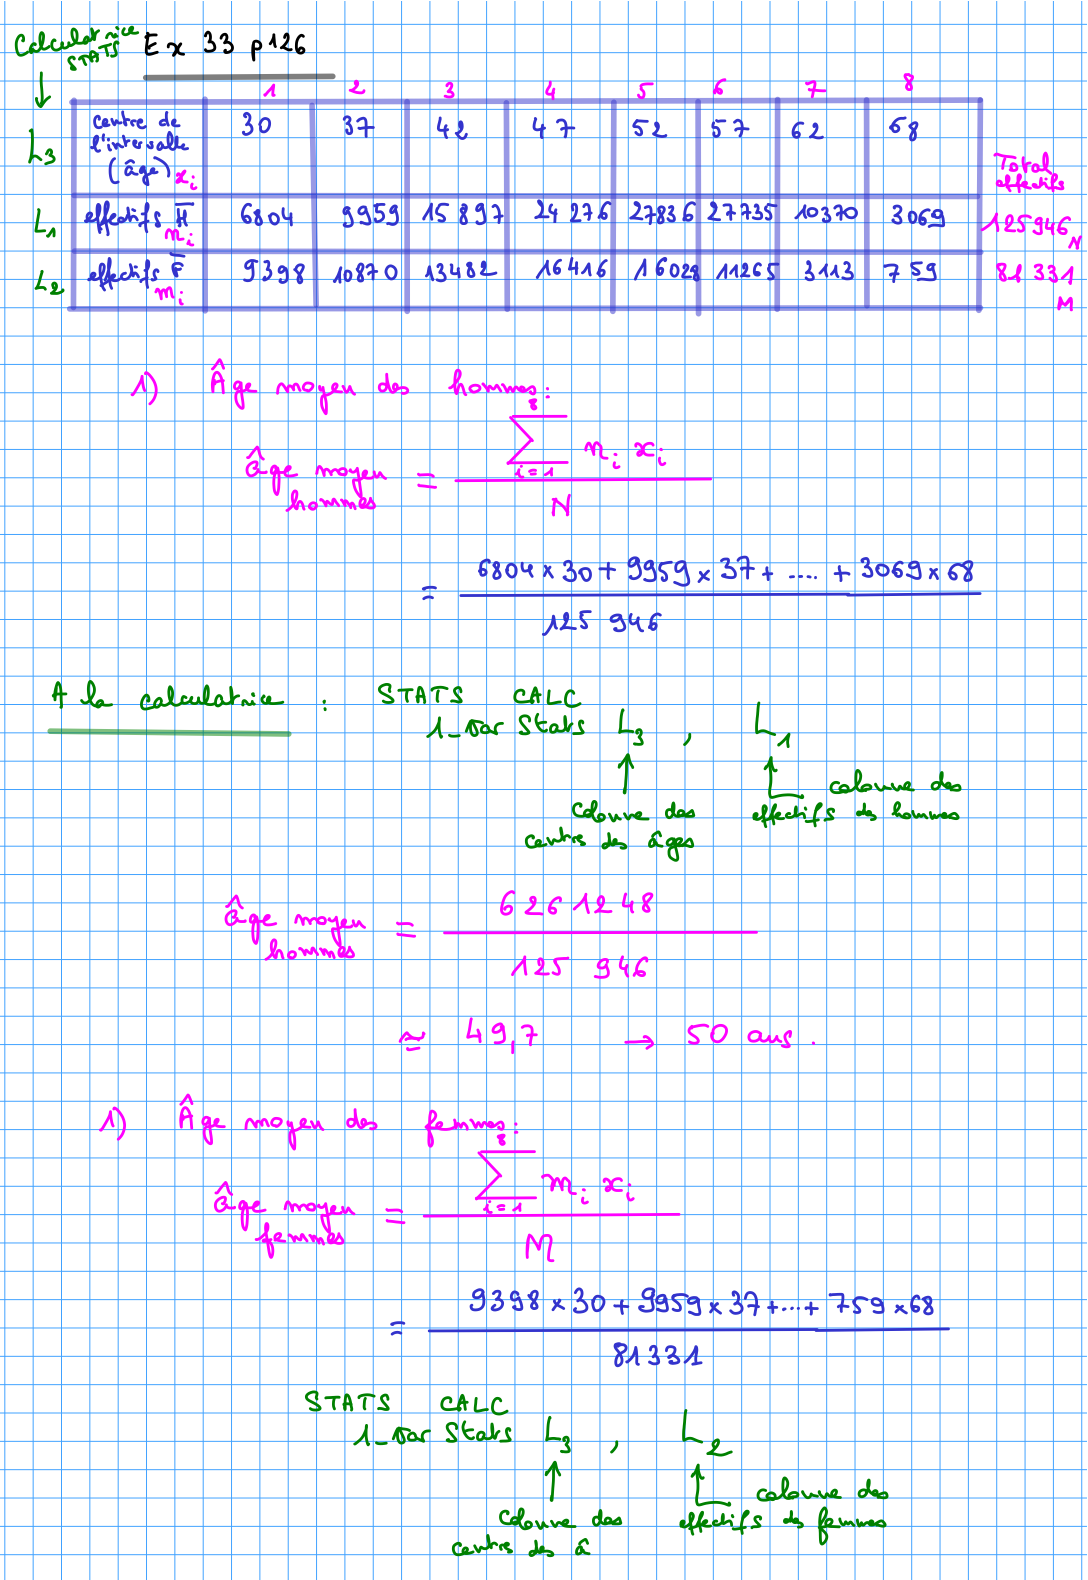 Calculatrice STATS
Ex 33 p126
1 2 3 4 5 6 7 8
L3 centre de l'intervalle (âge) xi 30 37 42 47 52 57 62 68
Total effectifs
L1 effectifs H ni 6804 9959 15 897 24 276 27836 27735 10370 3069 125 946 N
L2 effectifs F mi 9398 10870 13482 16416 16028 11265 3113 759 81 331 M
1) Âge moyen des hommes:
âge moyen hommes = 8 ∑ i=1 ni xi / N
= 6804 × 30 + 9959 × 37 + .... + 3069 × 68 / 125 946
A la calculatrice : STATS CALC
1_Var Stats L3 , L1
colonne des centres des âges
colonne des effectifs des hommes
âge moyen hommes = 6 261 248 / 125 946
≃ 49,7 → 50 ans.
1) Âge moyen des femmes:
âge moyen femmes = 8 ∑ i=1 mi xi / M
= 9398 × 30 + 9959 × 37 + ... + 759 × 68 / 81331
STATS CALC
1_Var Stats L3 , L2
colonne des centres des â
colonne des effectifs des femmes